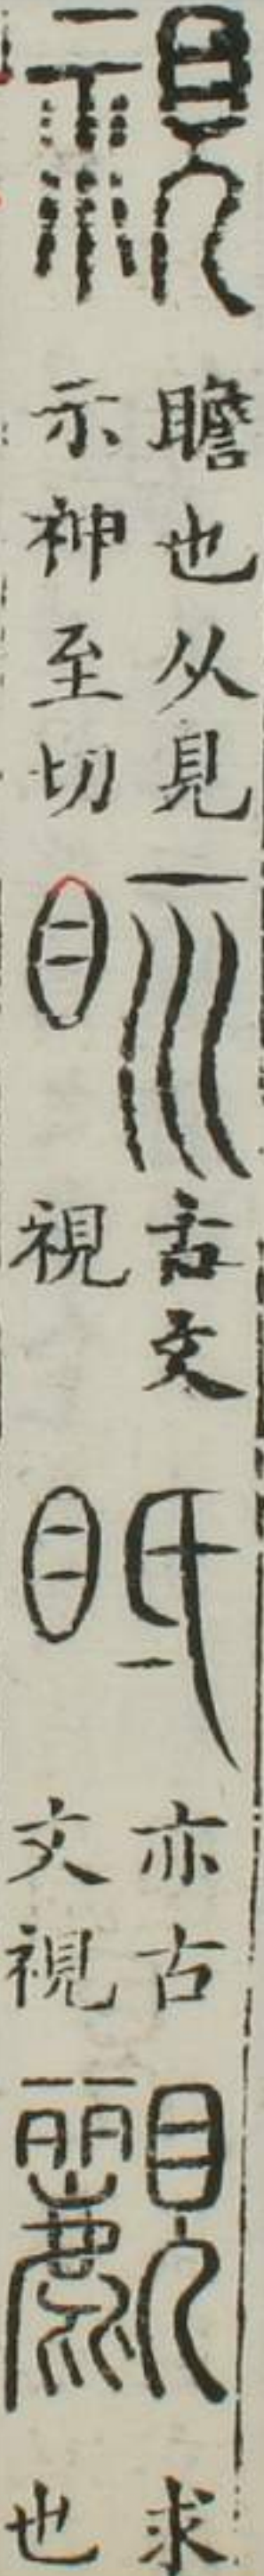 視
瞻也从見
示神至切
𥄙
古文
視
眡
亦古
文視
觀
求
也